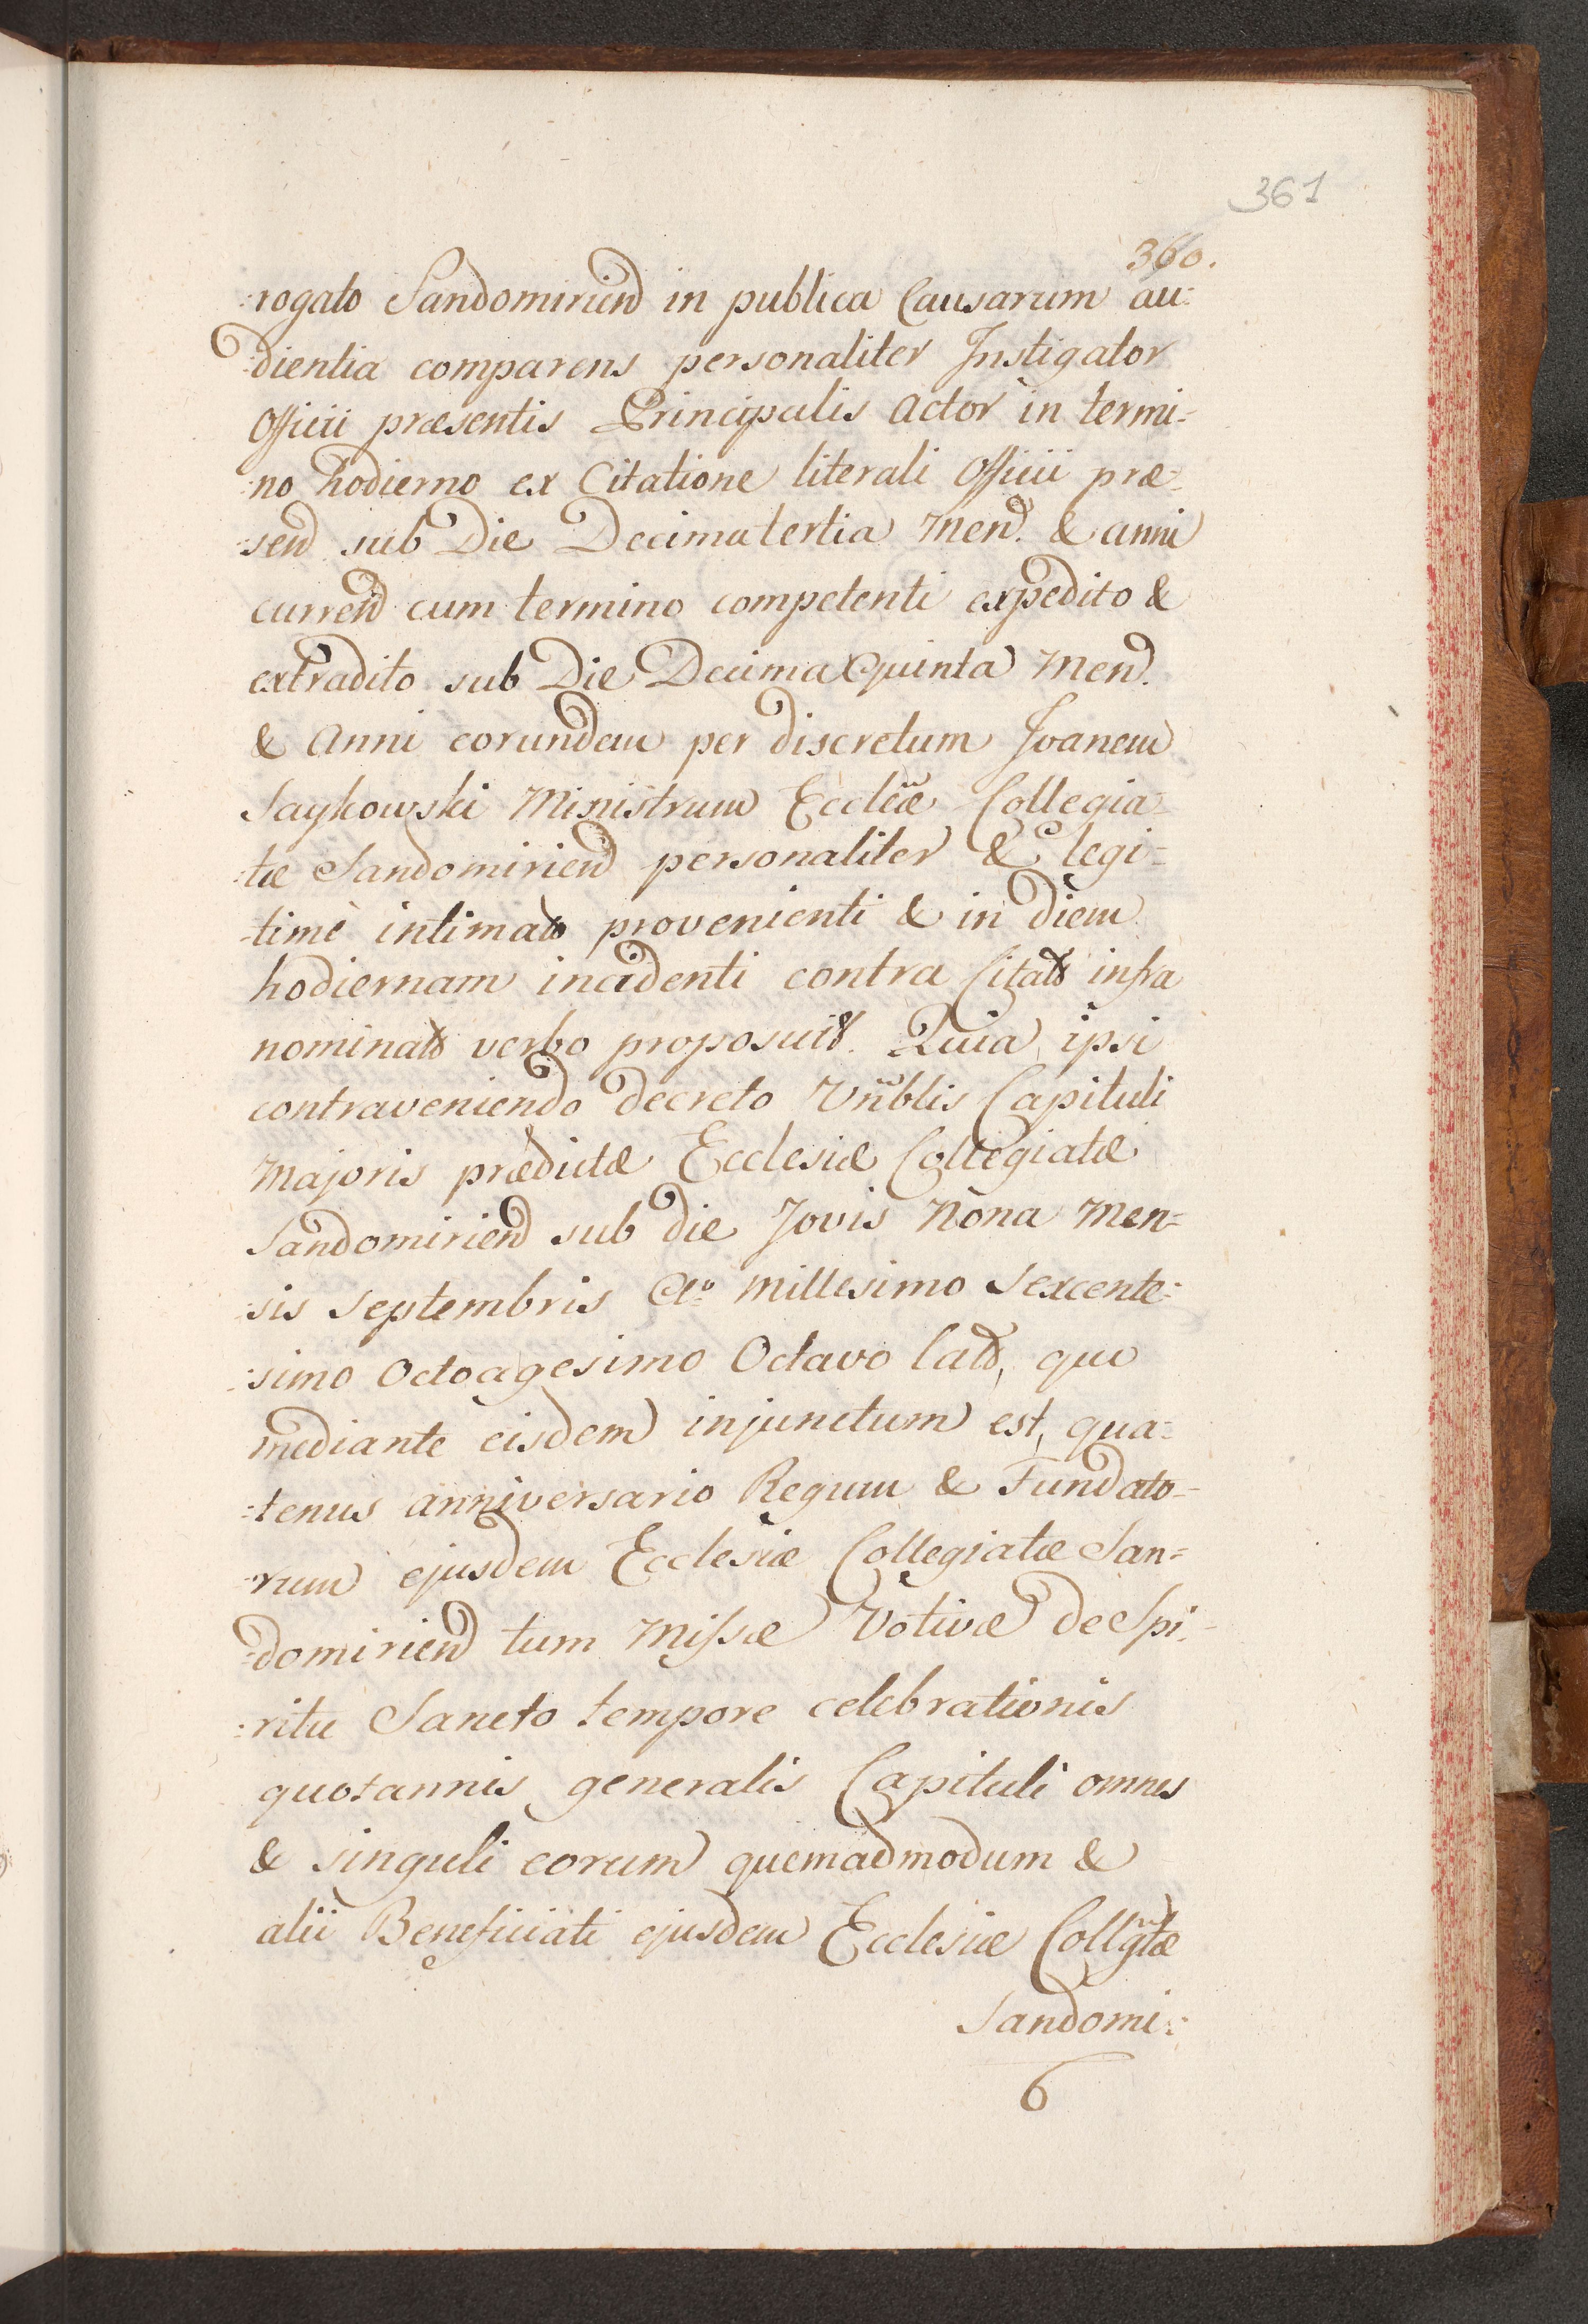 361
360.
:rogato Sandomirien in publica Causarum au:
:dientia comparens personaliter Instigator
Officii præsentis Principalis actor in termi-
:no hodierno ex Citatione literali Officii præ=
:sen sub Die Decima tertia Men. & anni
curren cum termino competenti expedito &
extradito sub Die Decima Quinta Men.
& Anni eorundem per discretum Joanem
Saykowski Ministrum Eccleiæ Collegia=
:tæ Sandomirien personaliter & legi=
-timè intimato provenienti & in diem
hodiernam incidenti contra Citatos infra
nominatos verbo proposuit. Quia ipsi
contraveniendo decreto Vnblis Capituli
Majoris prædictæ Ecclesiæ Collegiatæ
Sandomirien sub die Jovis Nona Men=
:sis Septembris Ao Millesimo Sexcente:
:simo Octoagesimo Octavo lato, quo
mediante eisdem injunctum est, qua=
:tenus anniversario Regum & Fundato-
:rum ejusdem Ecclesiæ Collegiatæ San=
:domirien tum Missæ Votivæ de Spi:
:ritu Sancto tempore celebrationis
quotannis generalis Capituli omnes
& singuli eorum quemadmodum &
alii Beneficiati ejusdem Ecclesiæ Collgtæ
Sandomi: